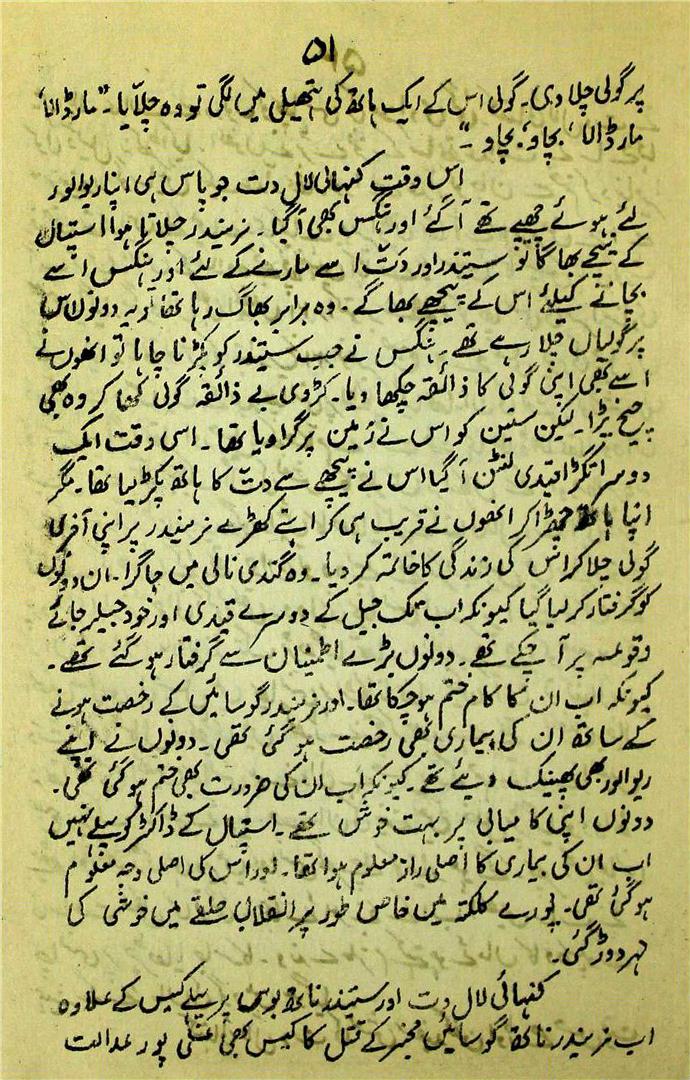 ۵۱
پر گولی چلا دی۔ گولی اس کے ایک ہاتھ کی ہتھیلی میں لگی تو وہ چلّایا۔ "مار ڈالا‘
مار ڈالا‘ بچاو‘ بچاو۔"
اس وقت کنہائی لال دت جو پاس ہی اپنا ریوالور
لئے ہوئے چھپے تھے آ گئے اور ہنگس بھی آ گیا۔ نریندر چلاتا ہوا اسپتال
کے نیچے بھاگا تو ستیندر اور دتّ اسے مارنے کے لئے اور ہنگس اسے
بچانے کیلئے اس کے پیچھے بھاگے۔ وہ برابر بھاگ رہا تھا اور یہ دونوں اس
پر گولیاں چلا رہے تھے۔ ہنگس نے جب ستیندر کو پکڑنا چاہا تو انھوں نے
اسے بھی اپنی گولی کا ذائقہ چکھا دیا۔ کڑوی بے ذائقہ گولی کھا کر وہ بھی
چیخ پڑا۔ لیکن ستین کو اس نے زمین پر گرا دیا تھا۔ اسی وقت ایک
دوسرا تگڑا قیدی لنٹن آ گیا اس نے پیچھے سے دتّ کا ہاتھ پکڑ لیا تھا۔ مگر
اپنا ہاتھ چھڑا کر انھوں نے قریب ہی کراہتے کھڑے نریندر پر اپنی آخری
گولی چلا کر اس کی زندگی کا خاتمہ کر دیا۔ وہ گندی نالی میں جا گرا۔ ان دونوں
کو گرفتار کر لیا گیا کیونکہ اب تک جیل کے دوسرے قیدی اور خود جیلر جائے
وقوعہ پر آ چکے تھے۔ دونوں بڑے اطمینان سے گرفتار ہو گئے تھے۔
کیونکہ اب ان کا کام ختم ہو چکا تھا۔ اور نریندر گوسائیں کے رخصت ہونے
کے ساتھ ان کی بیماری بھی رخصت ہو گئی تھی۔ دونوں نے اپنے
ریوالور بھی پھینک دیئے تھے۔ کیونکہ اب ان کی ضرورت بھی ختم ہو گئی تھی۔
دونوں اپنی کامیابی پر بہت خوش تھے۔ اسپتال کے ڈاکٹر کو پہلے نہیں
اب ان کی بیماری کا اصلی راز معلوم ہوا تھا۔ اور اس کی اصلی وجہ معلوم
ہو گئی تھی۔ پورے کلکتہ میں خاص طور پر انقلابی حلقے میں خوشی کی
لہر دوڑ گئی۔
کنہائی لال دت اور ستیندر ناتھ بوس پر پہلے کیس کے علاوہ
اب نریندر ناتھ گوسائیں مخبر کے قتل کا کیس بھی علی پور عدالت